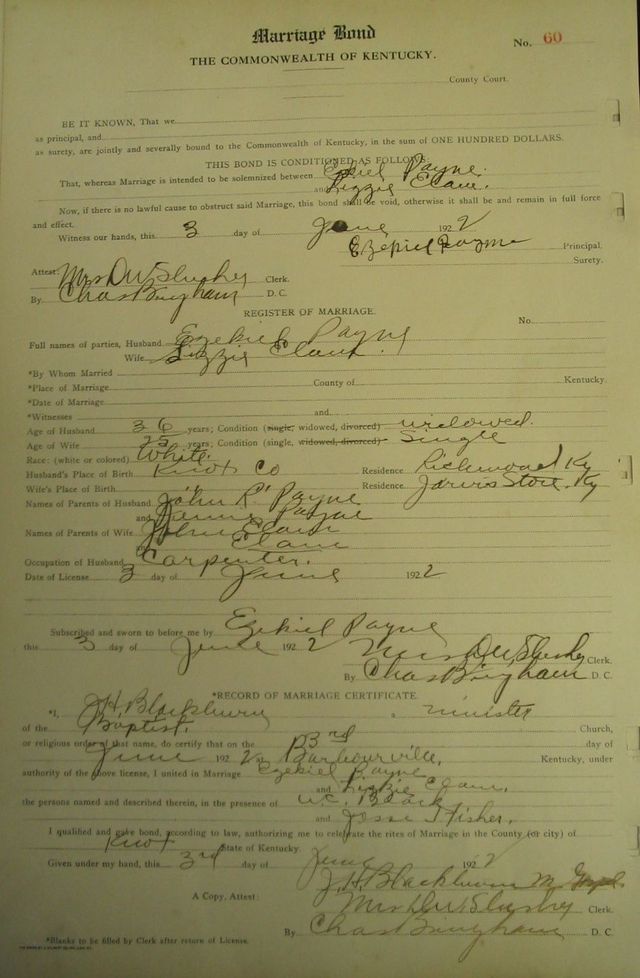 Marriage Bond
No. 60
THE COMMONWEALTH OF KENTUCKY.
County Court.
BE IT KNOWN, That we
as principal, and
as surety, are jointly and severally bound to the Commonwealth of Kentucky, in the sum of ONE HUNDRED DOLLARS.
THIS BOND IS CONDITIONED AS FOLLOWS:
That, whereas Marriage is intended to be solemnized between Ezekiel Payne
and Lizzie Elam.
Now, if there is no lawful cause to obstruct said Marriage, this bond shall be void, otherwise it shall be and remain in full force
and effect.
Witness our hands, this 3 day of June 1922
Ezekiel Payne Principal.
Surety.
Attest: Mrs D W Slusher Clerk.
By Chas Bingham D. C.
REGISTER OF MARRIAGE.
No.
Full names of parties, Husband Ezekiel Payne
Wife Lizzie Elam.
*By Whom Married
*Place of Marriage County of Kentucky.
*Date of Marriage
*Witnesses and
Age of Husband 36 years; Condition (single, widowed, divorced) widowed.
Age of Wife 25 years; Condition (single, widowed, divorced) Single
Race: (white or colored) White.
Husband's Place of Birth Knox Co Residence Richmond Ky
Wife's Place of Birth Residence Jarvis Store. Ky
Names of Parents of Husband John R Payne
and Jenny Payne
Names of Parents of Wife John Elam
Elam
Occupation of Husband Carpenter.
Date of License 3 day of June 1922
Subscribed and sworn to before me by Ezekiel Payne
this 3 day of June 1922 Mrs D W Slusher Clerk.
By Chas Bingham D. C.
*RECORD OF MARRIAGE CERTIFICATE.
*I, J.H. Blackburn a minister
of the Baptist. Church,
or religious order of that name, do certify that on the 3rd day of
June 1922 Barbourville, Kentucky, under
authority of the above license, I united in Marriage Ezekiel Payne
and Lizzie Elam,
the persons named and described therein, in the presence of W.C. Black
and Jesse Fisher.
I qualified and gave bond, according to law, authorizing me to celebrate the rites of Marriage in the County (or city) of
Knox State of Kentucky.
Given under my hand, this 3rd day of June 1922
J.H. Blackburn M
A Copy, Attest: Mrs D W Slusher Clerk.
By Chas Bingham D. C.
*Blanks to be filled by Clerk after return of License.